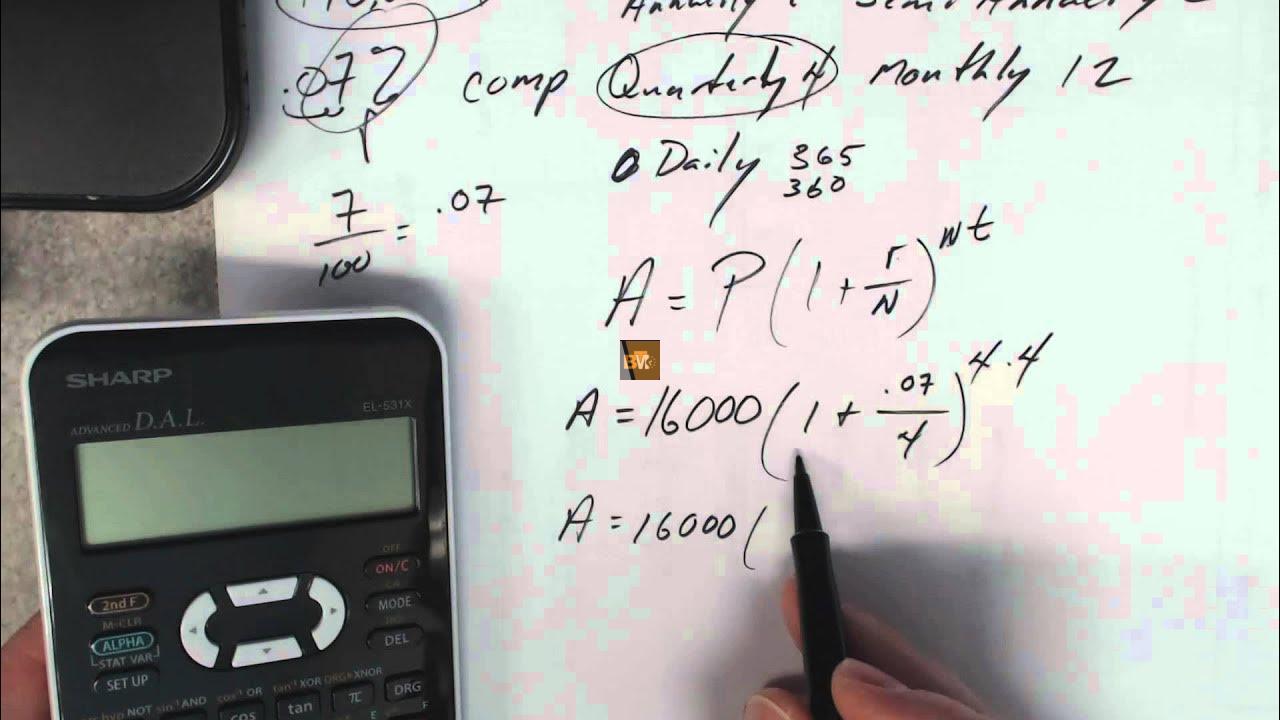 Annually Semi Annually 2
.07% comp Quarterly 4 monthly 12
r
Daily 365
360
7/100 = .07
A = P(1 + r/N)^Nt
SHARP
ADVANCED D.A.L.
EL-531X
BTK
A = 16000(1 + .07/4)^4.4
A = 16000(
OFF
ON/C
2nd F
CA
M-CLR
MODE
ALPHA
DEL
STAT VAR
SET UP
hyp NOT sin⁻¹ AND cos⁻¹ OR tan⁻¹ XOR DRG▸ XNOR
cos tan π DRG
E F